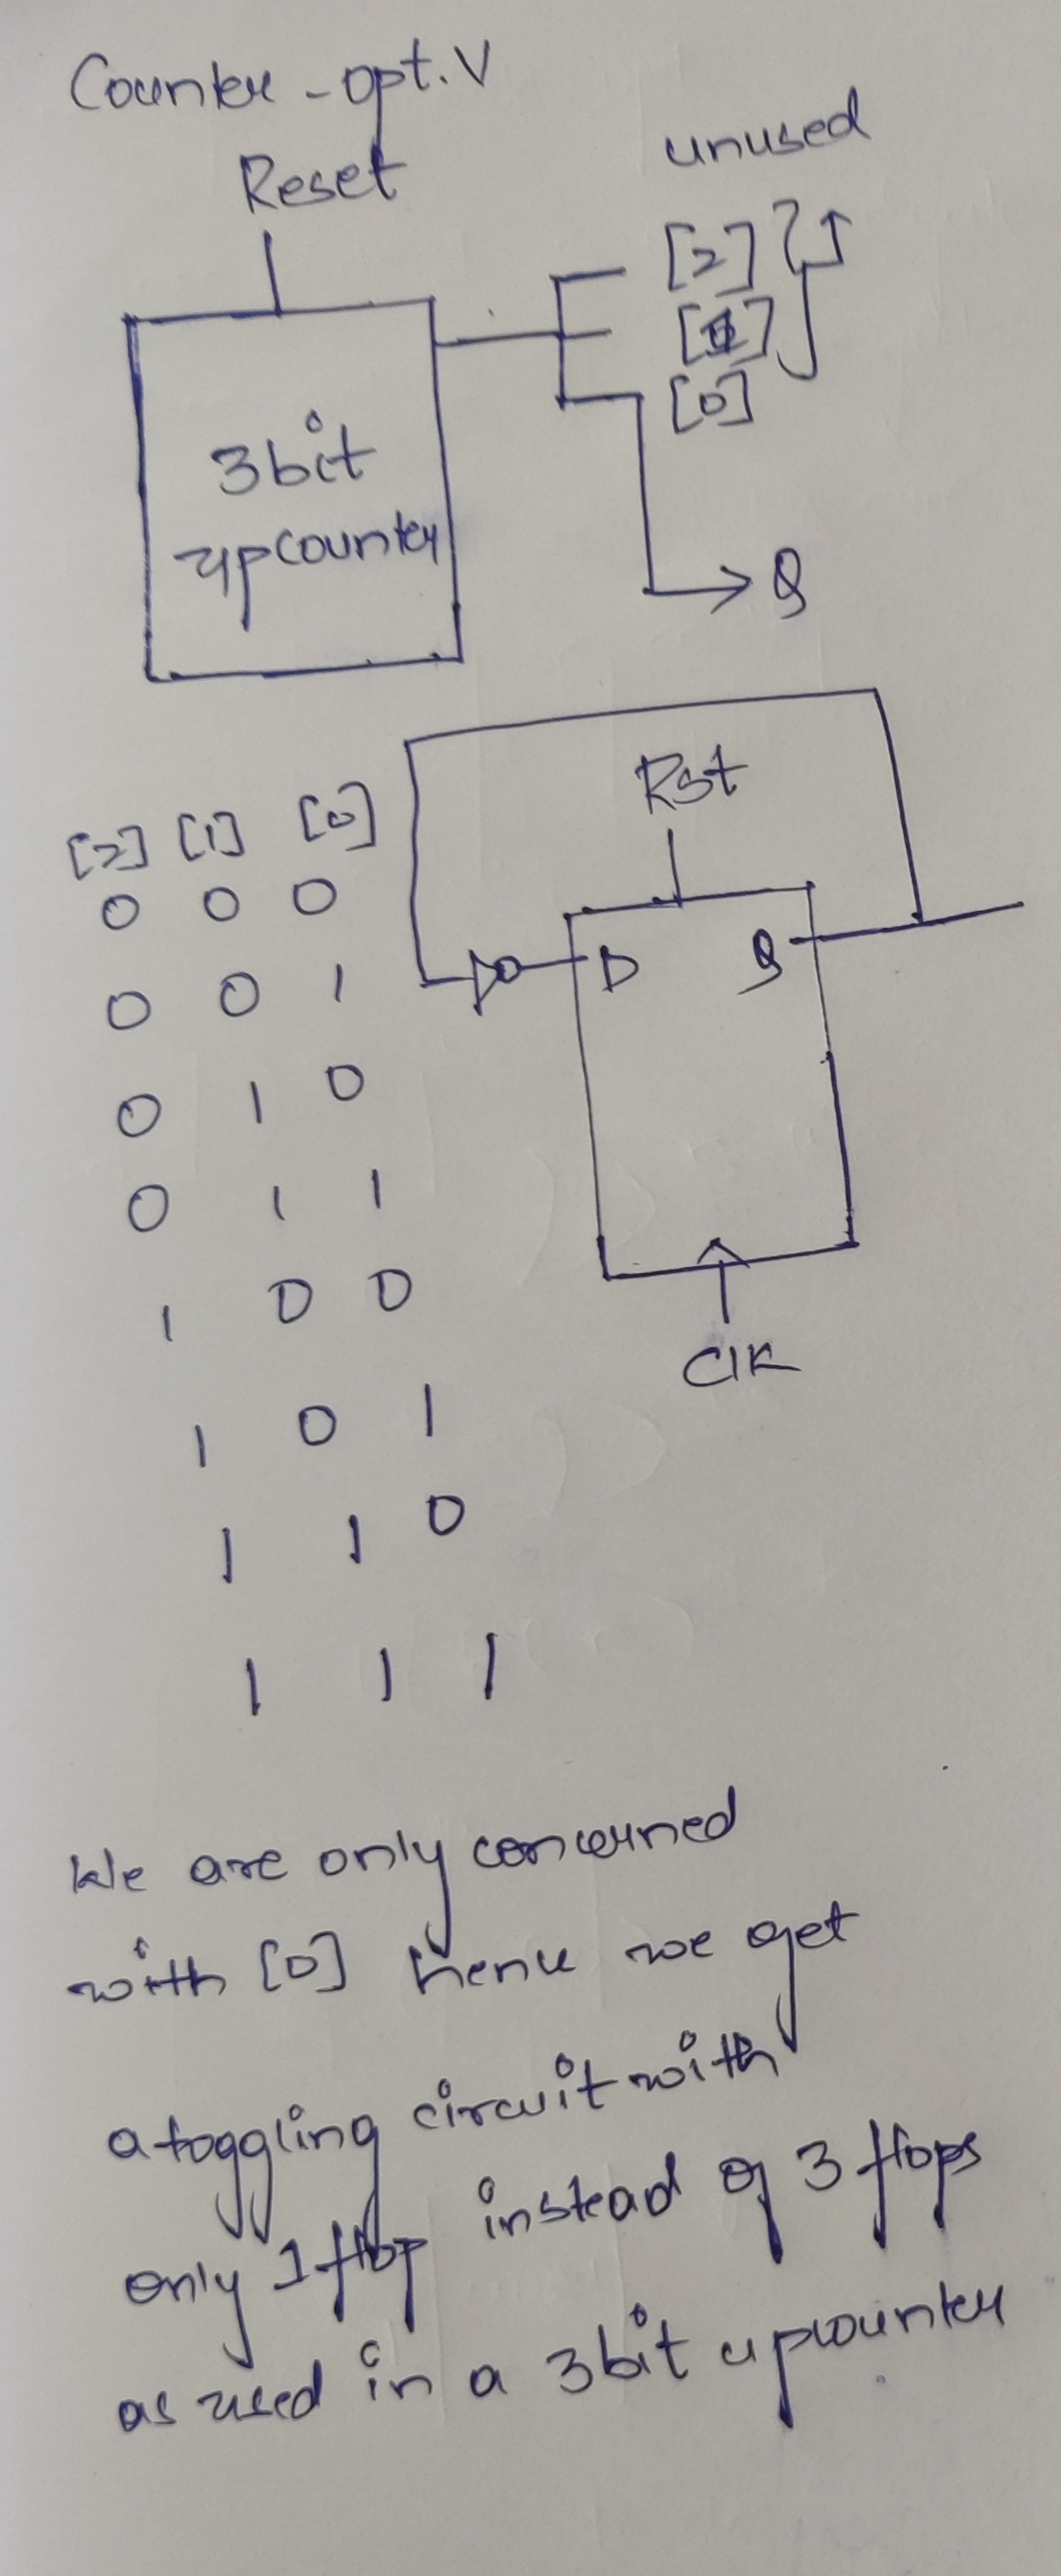 Counter-opt.V
Reset
unused
[2]
[1]
[0]
3bit
upcounter
Q
Rst
[2] [1] [0]
0 0 0
D Q
0 0 1
0 1 0
0 1 1
1 0 0
Clk
1 0 1
1 1 0
1 1 1
We are only concerned
with [0] hence we get
a toggling circuit with
only 1 flop instead of 3 flops
as used in a 3bit upcounter